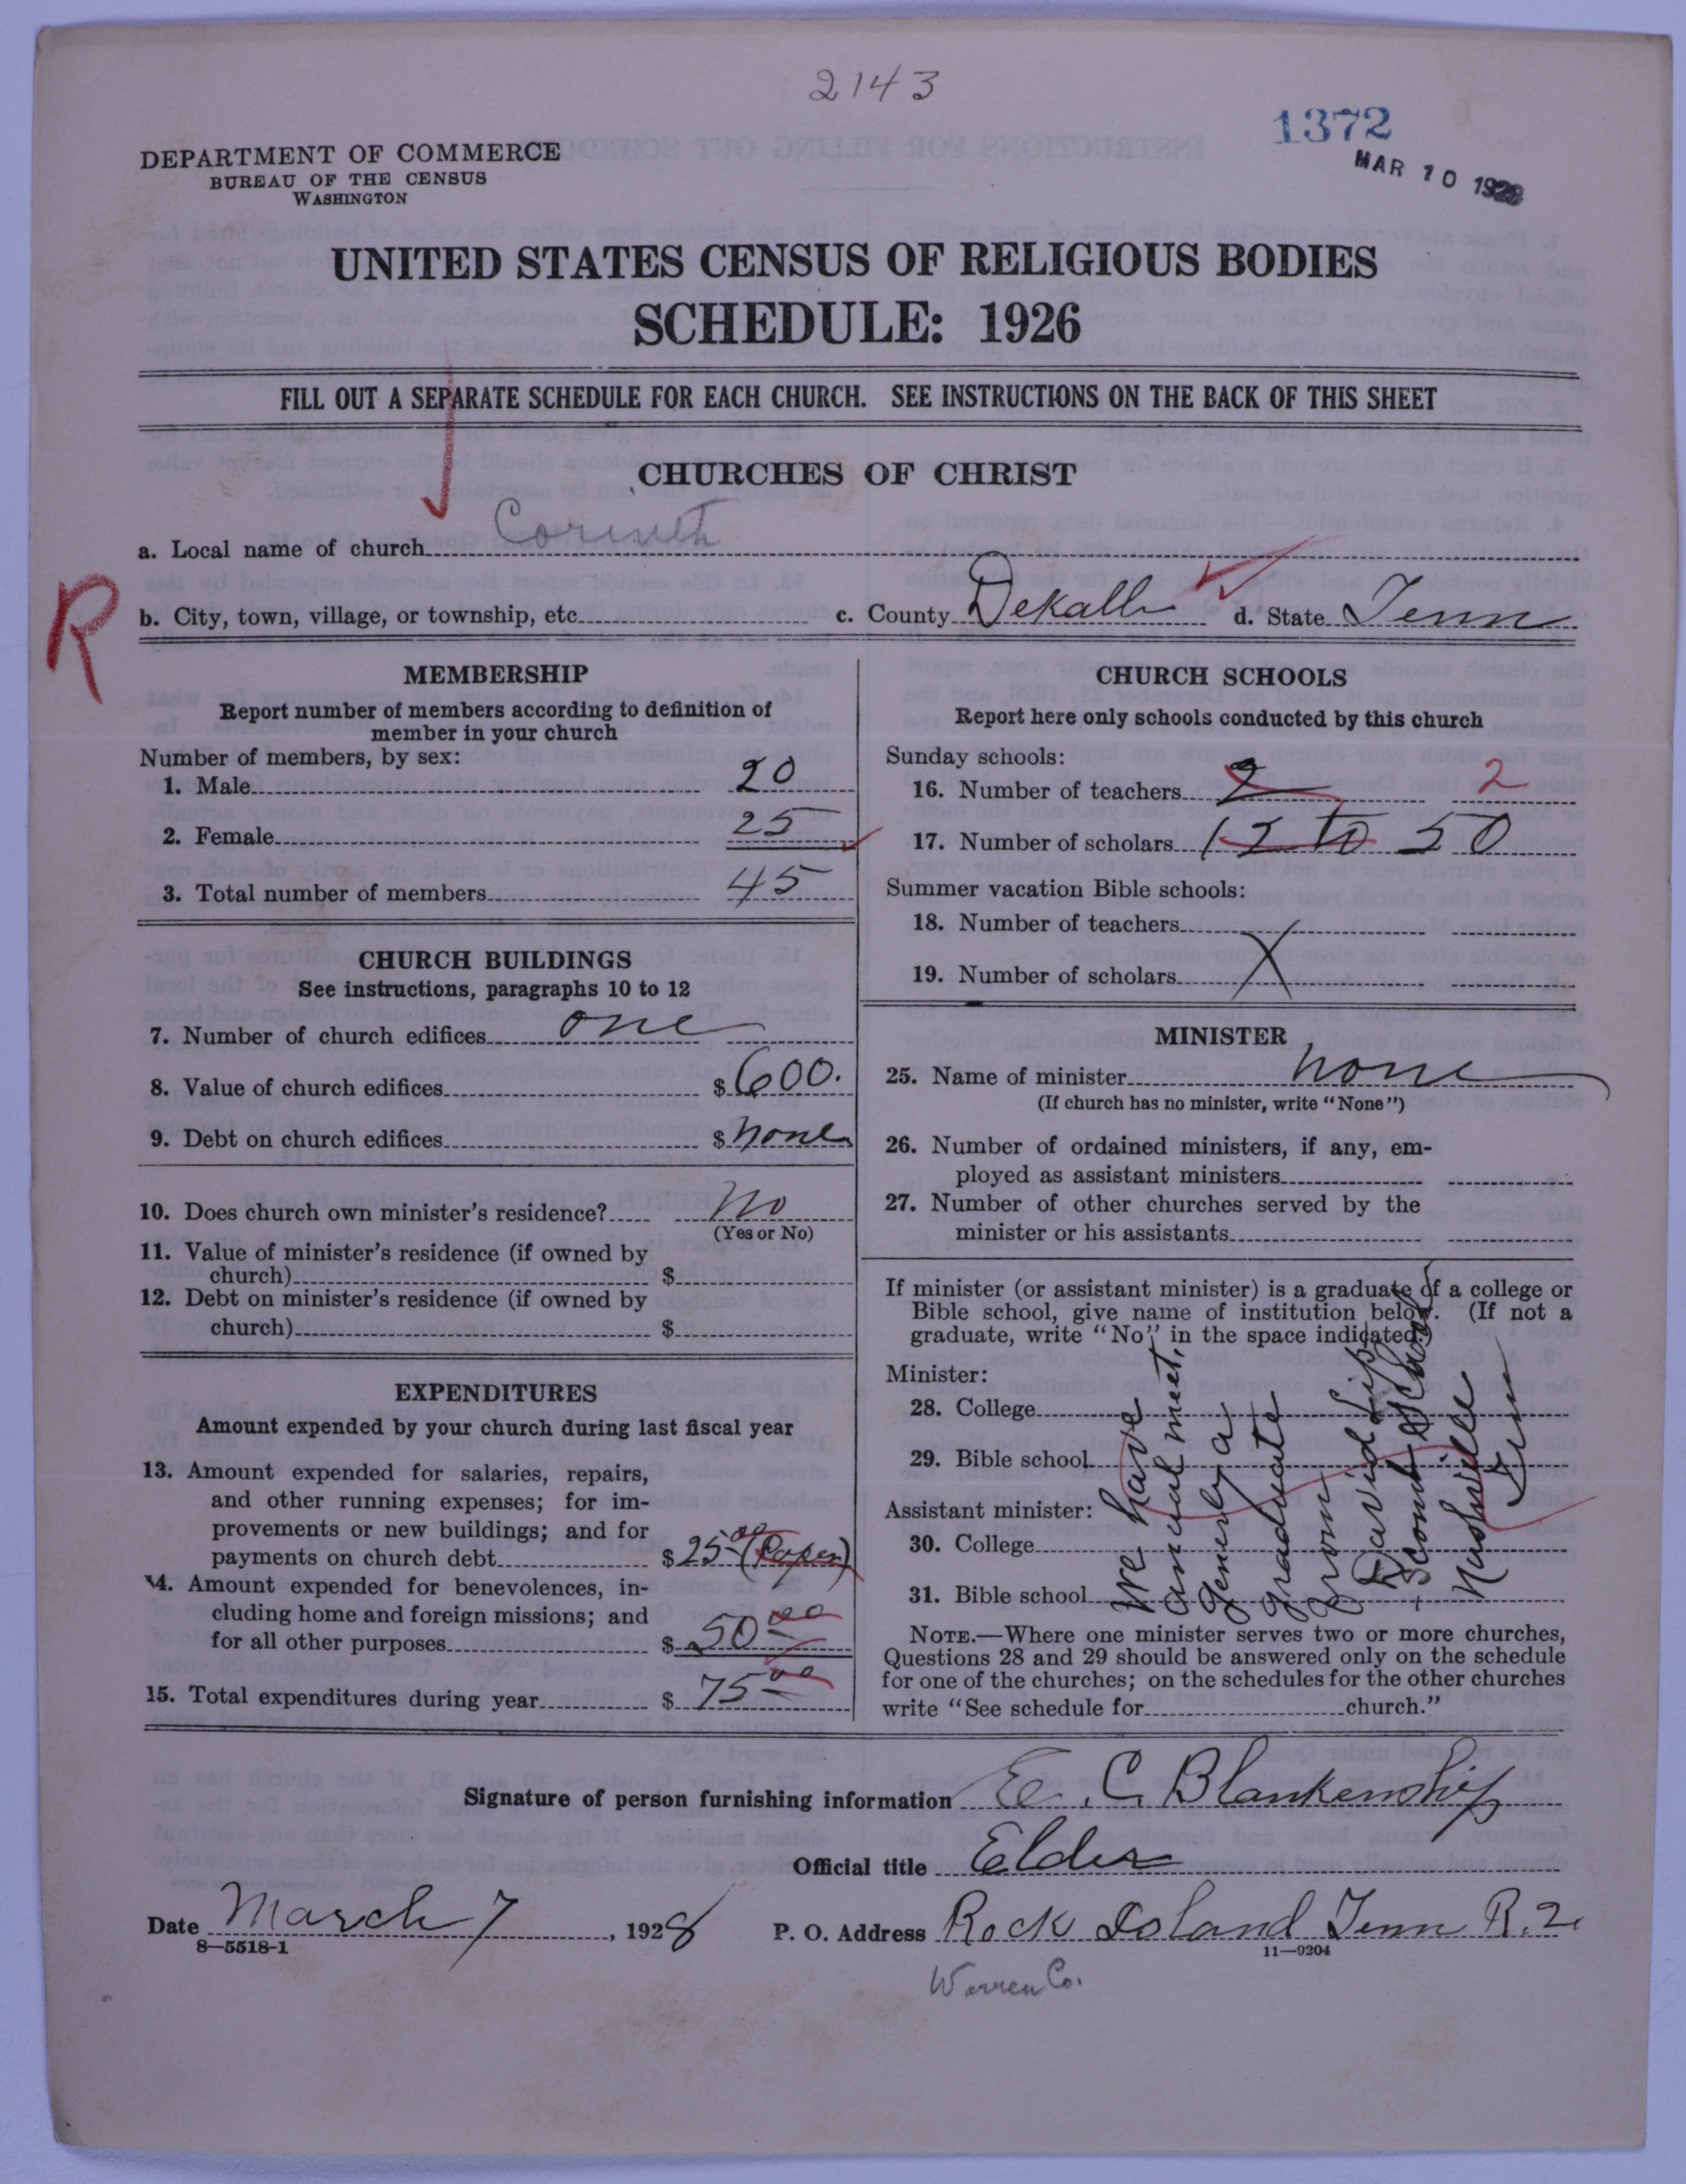 2143
1372
MAR 10 1928
DEPARTMENT OF COMMERCE
BUREAU OF THE CENSUS
WASHINGTON
UNITED STATES CENSUS OF RELIGIOUS BODIES
SCHEDULE: 1926
FILL OUT A SEPARATE SCHEDULE FOR EACH CHURCH. SEE INSTRUCTIONS ON THE BACK OF THIS SHEET
CHURCHES OF CHRIST
a. Local name of church Corinth
R
b. City, town, village, or township, etc. c. County Dekalb d. State Tenn
MEMBERSHIP
Report number of members according to definition of
member in your church
Number of members, by sex:
1. Male 20
2. Female 25
3. Total number of members 45
CHURCH BUILDINGS
See instructions, paragraphs 10 to 12
7. Number of church edifices one
8. Value of church edifices $ 600.
9. Debt on church edifices $ none
10. Does church own minister's residence? No
(Yes or No)
11. Value of minister's residence (if owned by
church) $
12. Debt on minister's residence (if owned by
church) $
EXPENDITURES
Amount expended by your church during last fiscal year
13. Amount expended for salaries, repairs,
and other running expenses; for im-
provements or new buildings; and for
payments on church debt $ 25 00
14. Amount expended for benevolences, in-
cluding home and foreign missions; and
for all other purposes $ 50 00
15. Total expenditures during year $ 75 00
CHURCH SCHOOLS
Report here only schools conducted by this church
Sunday schools:
16. Number of teachers 2 2
17. Number of scholars 12 to 50
Summer vacation Bible schools:
18. Number of teachers
19. Number of scholars X
MINISTER
25. Name of minister none
(If church has no minister, write "None")
26. Number of ordained ministers, if any, em-
ployed as assistant ministers
27. Number of other churches served by the
minister or his assistants
If minister (or assistant minister) is a graduate of a college or
Bible school, give name of institution below. (If not a
graduate, write "No" in the space indicated.)
Minister:
28. College
29. Bible school
Assistant minister:
30. College
31. Bible school
We have
annual meet,
Generly a
graduate
from
David Lips
School
Nashville
Tenn
NOTE.—Where one minister serves two or more churches,
Questions 28 and 29 should be answered only on the schedule
for one of the churches; on the schedules for the other churches
write "See schedule for church."
Signature of person furnishing information E. C. Blankenship
Official title Elder
Date March 7, 1928 P. O. Address Rock Island Tenn R.2
8—5518-1
11—9204
Warren Co.